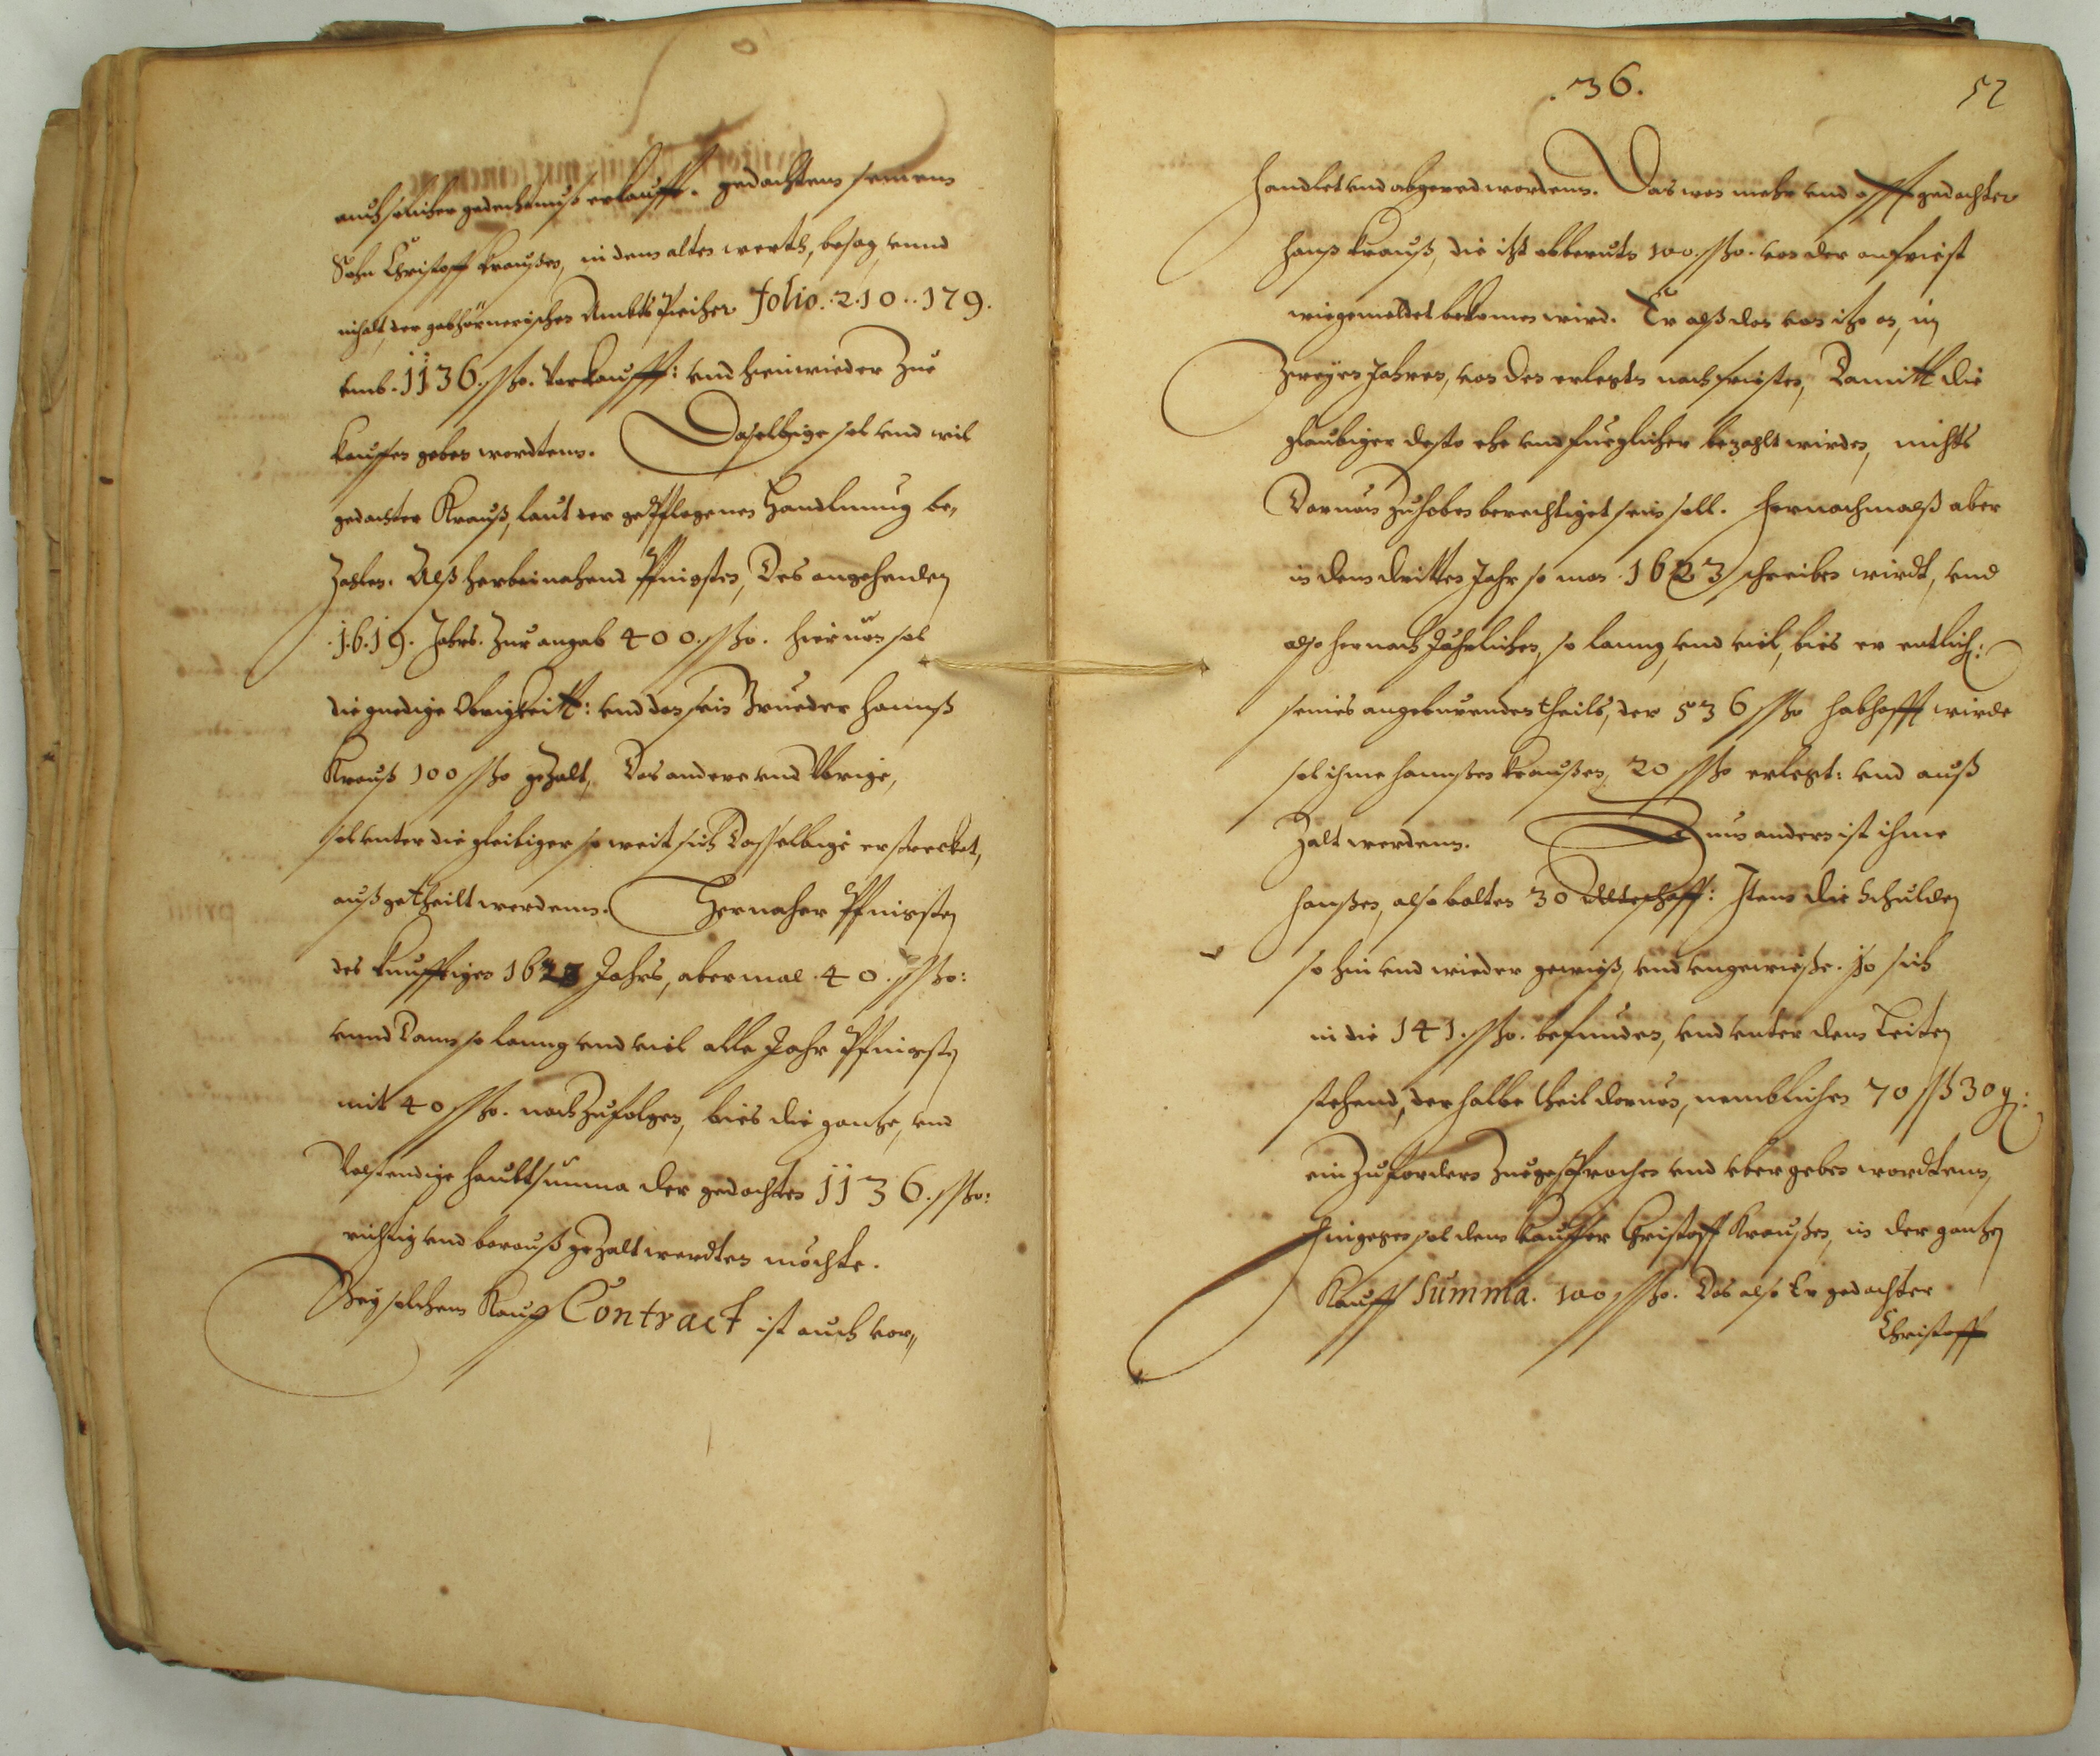 auch seliher gedechtnuß erkaufft. gedachtem seinem
Sohn Christoff Kraußen, in dem alten werth, besag, vnnd
inhalt, der gebhörnerischen Ambts Piecher folio. 2.10..179.
vmb. 1136. ßo. Verkaufft: vnd hinwieder Zue
kauffen geben wordtenn. Daselbige sol vnd wil
gedachter Krauß, laut der gepflogenen Handlunng be,
Zahlen. Alß herbeinahend Pfingsten, Des angehenden
.1.6.19. Jahrs. Zur angab 400. ßo. hieruon sol
die gnedige Obrigkeitt: vnd dan sein Brueder Hannß
Krauß 100 ßo gezalt, Das andere vnd Vbrige,
sol vnter die gleibiger so weit sich Dasselbige erstrecket,
auß getheilt werdenn. Hernaher Pfingsten
des kunfftigen Jahrs, abermal. 40. ßo:
vnnd Dann so lanng vnd viel alle Jahr Pfingsten
mit 40 ßo. nach Zufolgen, bies die gantze, vnd
Volstendige haubtsumma der gedachten 1136. ßo:
richtig vnd barauß gezalt werdten möchte.
Bey solchem Kauff Contract ist auch vor,,
.36. 52
handlet vnd abgered wordenn. Das wan mehr vnd offtgedachter
Hanß Krauß, die itzt obberurte 100. ßo. von der anfriest
wiegemeldet bekomen wird. Er alß dan von itzo an, in
Zweyen Jahren, von den erlegten nachfriesten, Damitt die
glaubiger desto ehe vnd fueglicher bezahlt wirden, nichts
Daruon Zuheben berechtiget sein soll. Hernachmalß aber
in dem dritten Jahr so man 1623 schreiben wirdt, vnd
also hernach Jährlichen, so lanng, vnd viel, bies er entlich:
seines angeburenden theils, der 536 ßo habhafft wirde
sol ihme Hannßen Kraußen, 20 ßo erlegt: vnd auß
Zalt werdenn. Zum andern ist ihme
Hanßen, also balten 30 Alteschaff: Item die Schulden
so hin vnd wieder gewieß, vnd vngewieße. so sich
in die 141. ßo. befinden, vnd vnter den Leiten
stehend, der halbe theil daruon, nemblichen 70 ßß 30 g:
ein Zufordern Zuegesprochen vnd vbergeben wordtenn,
Hingegen sol dem Kauffer Christoff Kraußen, in der gantzen
Kauff Summa. 100 ßo. Das also Er gedachter
Christoff